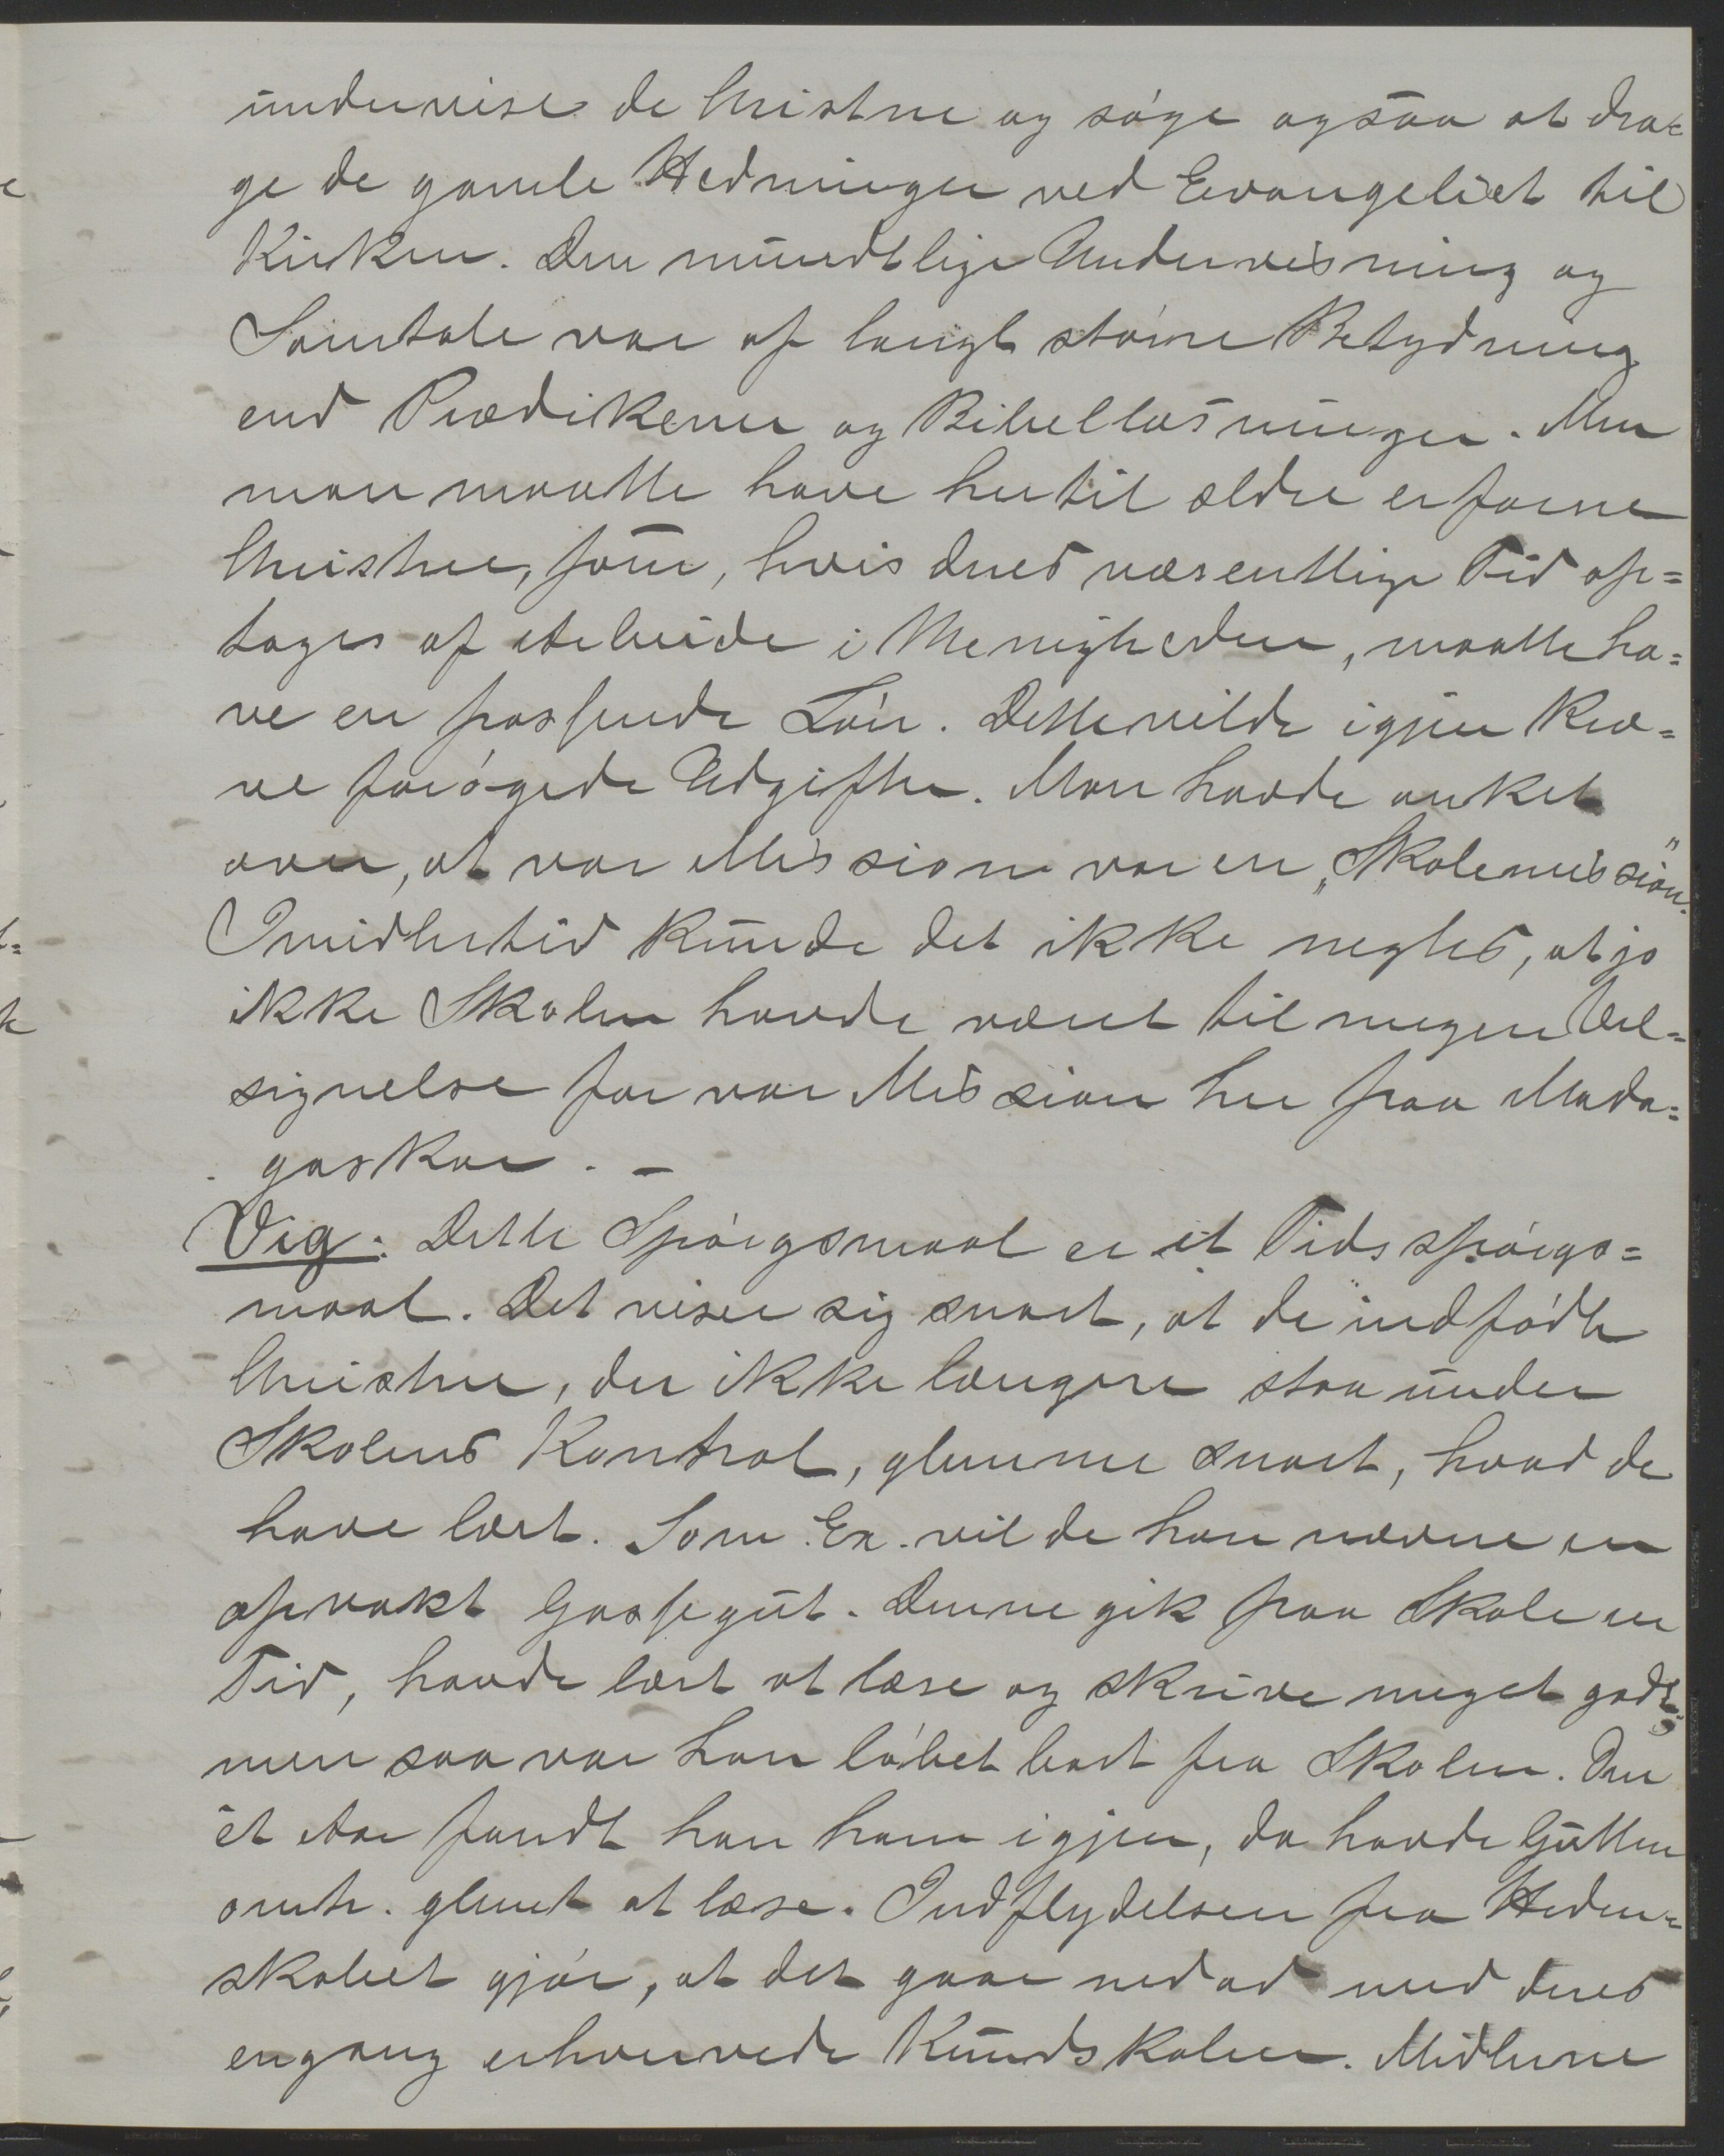 undervise de Christne og søge ogsaa at dra=
ge de gamle Hedninger ved Evangeliet til
Kirken. Den mundtlige Undervisning og
Samtale var af langt større Betydning
end Prædikener og Bibellæsninger. Men
man maatte have hertil ældre erfarne
Christne, som, hvis deres væsentlige Tid op=
tages af Arbeide i Menigheden, maatte ha=
ve en passende Løn. Dette vilde igjen kræ=
ve forøgede Udgifter. Man havde anket
over, at vor Mission var en „Skolemission".
Imidlertid kunde det ikke negtes, at jo
ikke Skolen havde været til megen Vel=
signelse for vor Mission her paa Mada=
gaskar. –
Vig: Dette Spørgsmaal er et Tidsspørgs=
maal. Det viser sig snart, at de indfødte
Christne, der ikke længere staa under
Skolens Kontrol, glemme snart, hvad de
have lært. Som Ex. vilde han nævne en
opvakt Gassegut. Denne gik paa Skole en
Tid, havde lært at læse og skrive meget godt;
men saa var han løbet bort fra Skolen. Om
et Aar fandt han ham igjen, da havde Gutten
omtr. glemt at læse. Indflydelsen fra Heden=
skabet gjør, at det gaar nedad med deres
engang erhvervede Kundskaber. Midlerne